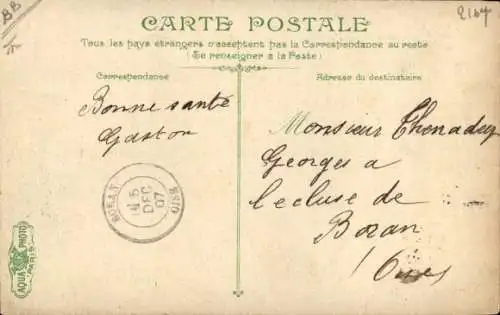 BB
2164
CARTE POSTALE
Tous les pays étrangers n'acceptent pas la Correspondance au recto
(Se renseigner à la Poste)
Correspondance
Adresse du destinataire
Bonne santé
Gaston
Monsieur
Georges a
l'ecluse de
Boran
Oise
BORAN
5
DEC
07
OISE
AQUA PHOTO
PARIS